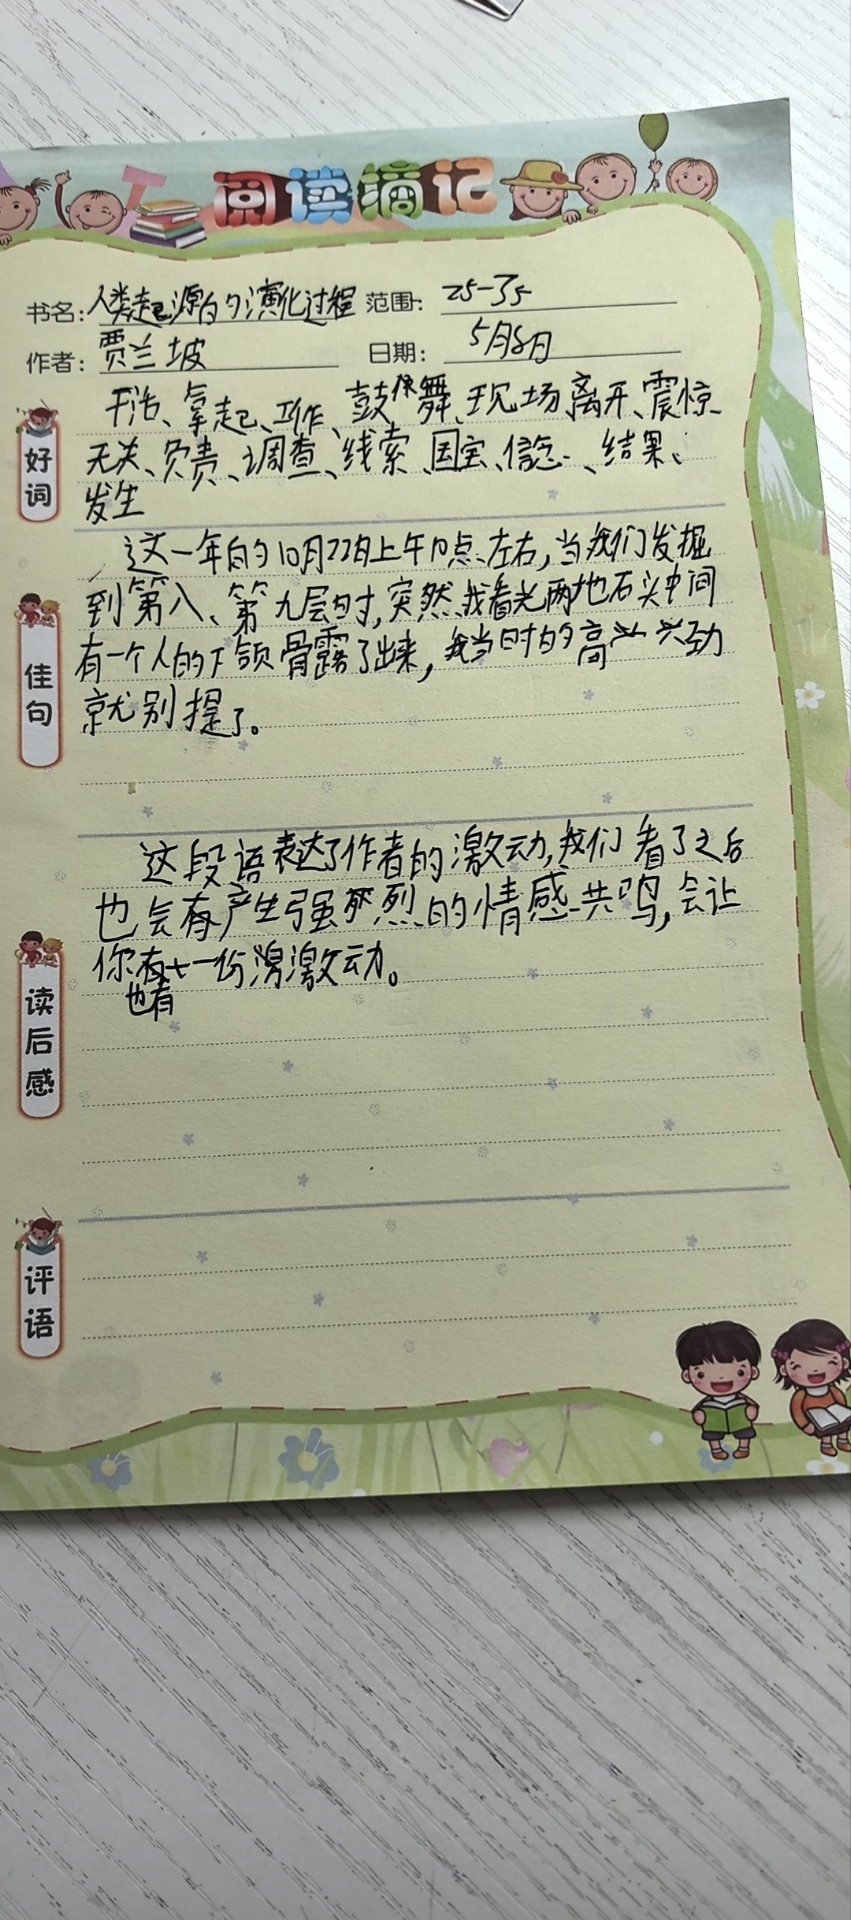 阅读摘记
书名：人类起源的演化过程 范围：25-35
作者：贾兰坡 日期：5月8日
好词
干活、拿起、工作、鼓舞、现场、离开、震惊、
无关、负责、调查、线索、国宝、信念、结果、
发生
佳句
这一年的10月22日上午10点左右，当我们发掘
到第八、第九层时，突然我看见两块石头中间
有一个人的下颌骨露了出来，我当时的高兴劲
就别提了。
读后感
这段语表达了作者的激动，我们看了之后
也会有产生强烈的情感共鸣，会让
你有一份激动。
也有
评语